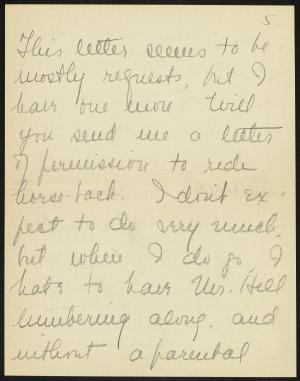 5
This letter seems to be
mostly requests, but I
have one more. Will
you send me a letter
of permission to ride
horse-back. I don't ex
pect to do very much,
but when I do go, I
hate to have Mr. Hill
lumbering along, and
without a parental